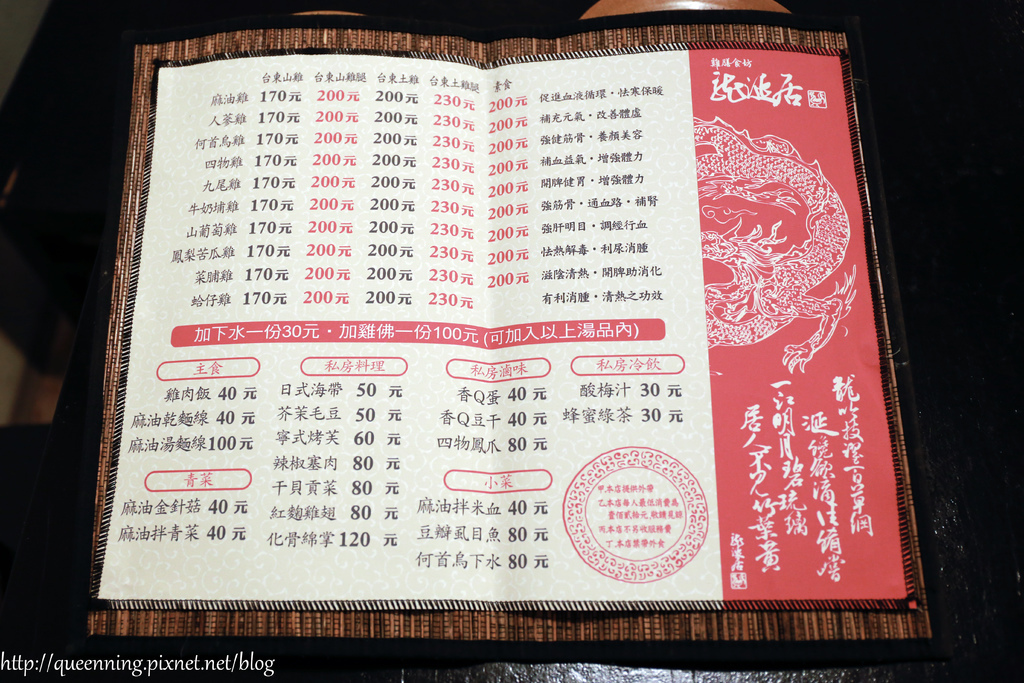 台東山雞 台東山雞腿 台東土雞 台東土雞腿 素食
麻油雞 170元 200元 200元 230元 200元 促進血液循環·怯寒保暖
人蔘雞 170元 200元 200元 230元 200元 補充元氣·改善體虛
何首烏雞 170元 200元 200元 230元 200元 強健筋骨·養顏美容
四物雞 170元 200元 200元 230元 200元 補血益氣·增強體力
九尾雞 170元 200元 200元 230元 200元 開脾健胃·增強體力
牛奶埔雞 170元 200元 200元 230元 200元 強筋骨·通血路·補腎
山葡萄雞 170元 200元 200元 230元 200元 強肝明目·調經行血
鳳梨苦瓜雞 170元 200元 200元 230元 200元 怯熱解毒·利尿消腫
菜脯雞 170元 200元 200元 230元 200元 滋陰清熱·開脾助消化
蛤仔雞 170元 200元 200元 230元 有利消腫·清熱之功效
加下水一份30元·加雞佛一份100元(可加入以上湯品內)
主食
雞肉飯 40 元
麻油乾麵線 40 元
麻油湯麵線100元
青菜
麻油金針菇 40 元
麻油拌青菜 40 元
私房料理
日式海帶 50 元
芥茉毛豆 50 元
寧式烤芙 60 元
辣椒塞肉 80 元
干貝貢菜 80 元
紅麴雞翅 80 元
化骨綿掌120 元
私房滷味
香Q蛋 40 元
香Q豆干 40 元
四物鳳爪 80 元
小菜
麻油拌米血 40 元
豆瓣虱目魚 80 元
何首烏下水 80 元
私房冷飲
酸梅汁 30 元
蜂蜜綠茶 30 元
甲.本店提供外帶
乙.本店每人最低消費為
壹佰貳拾元,敬請見諒
丙.本店不另收服務費
丁.本店禁帶外食
雞膳食坊
龍涎居
龍吟技擢百草洞
涎繞欲滴佳餚嚐
一江明月碧琉璃
居人不見竹葉黃
龍涎居
http://queenning.pixnet.net/blog